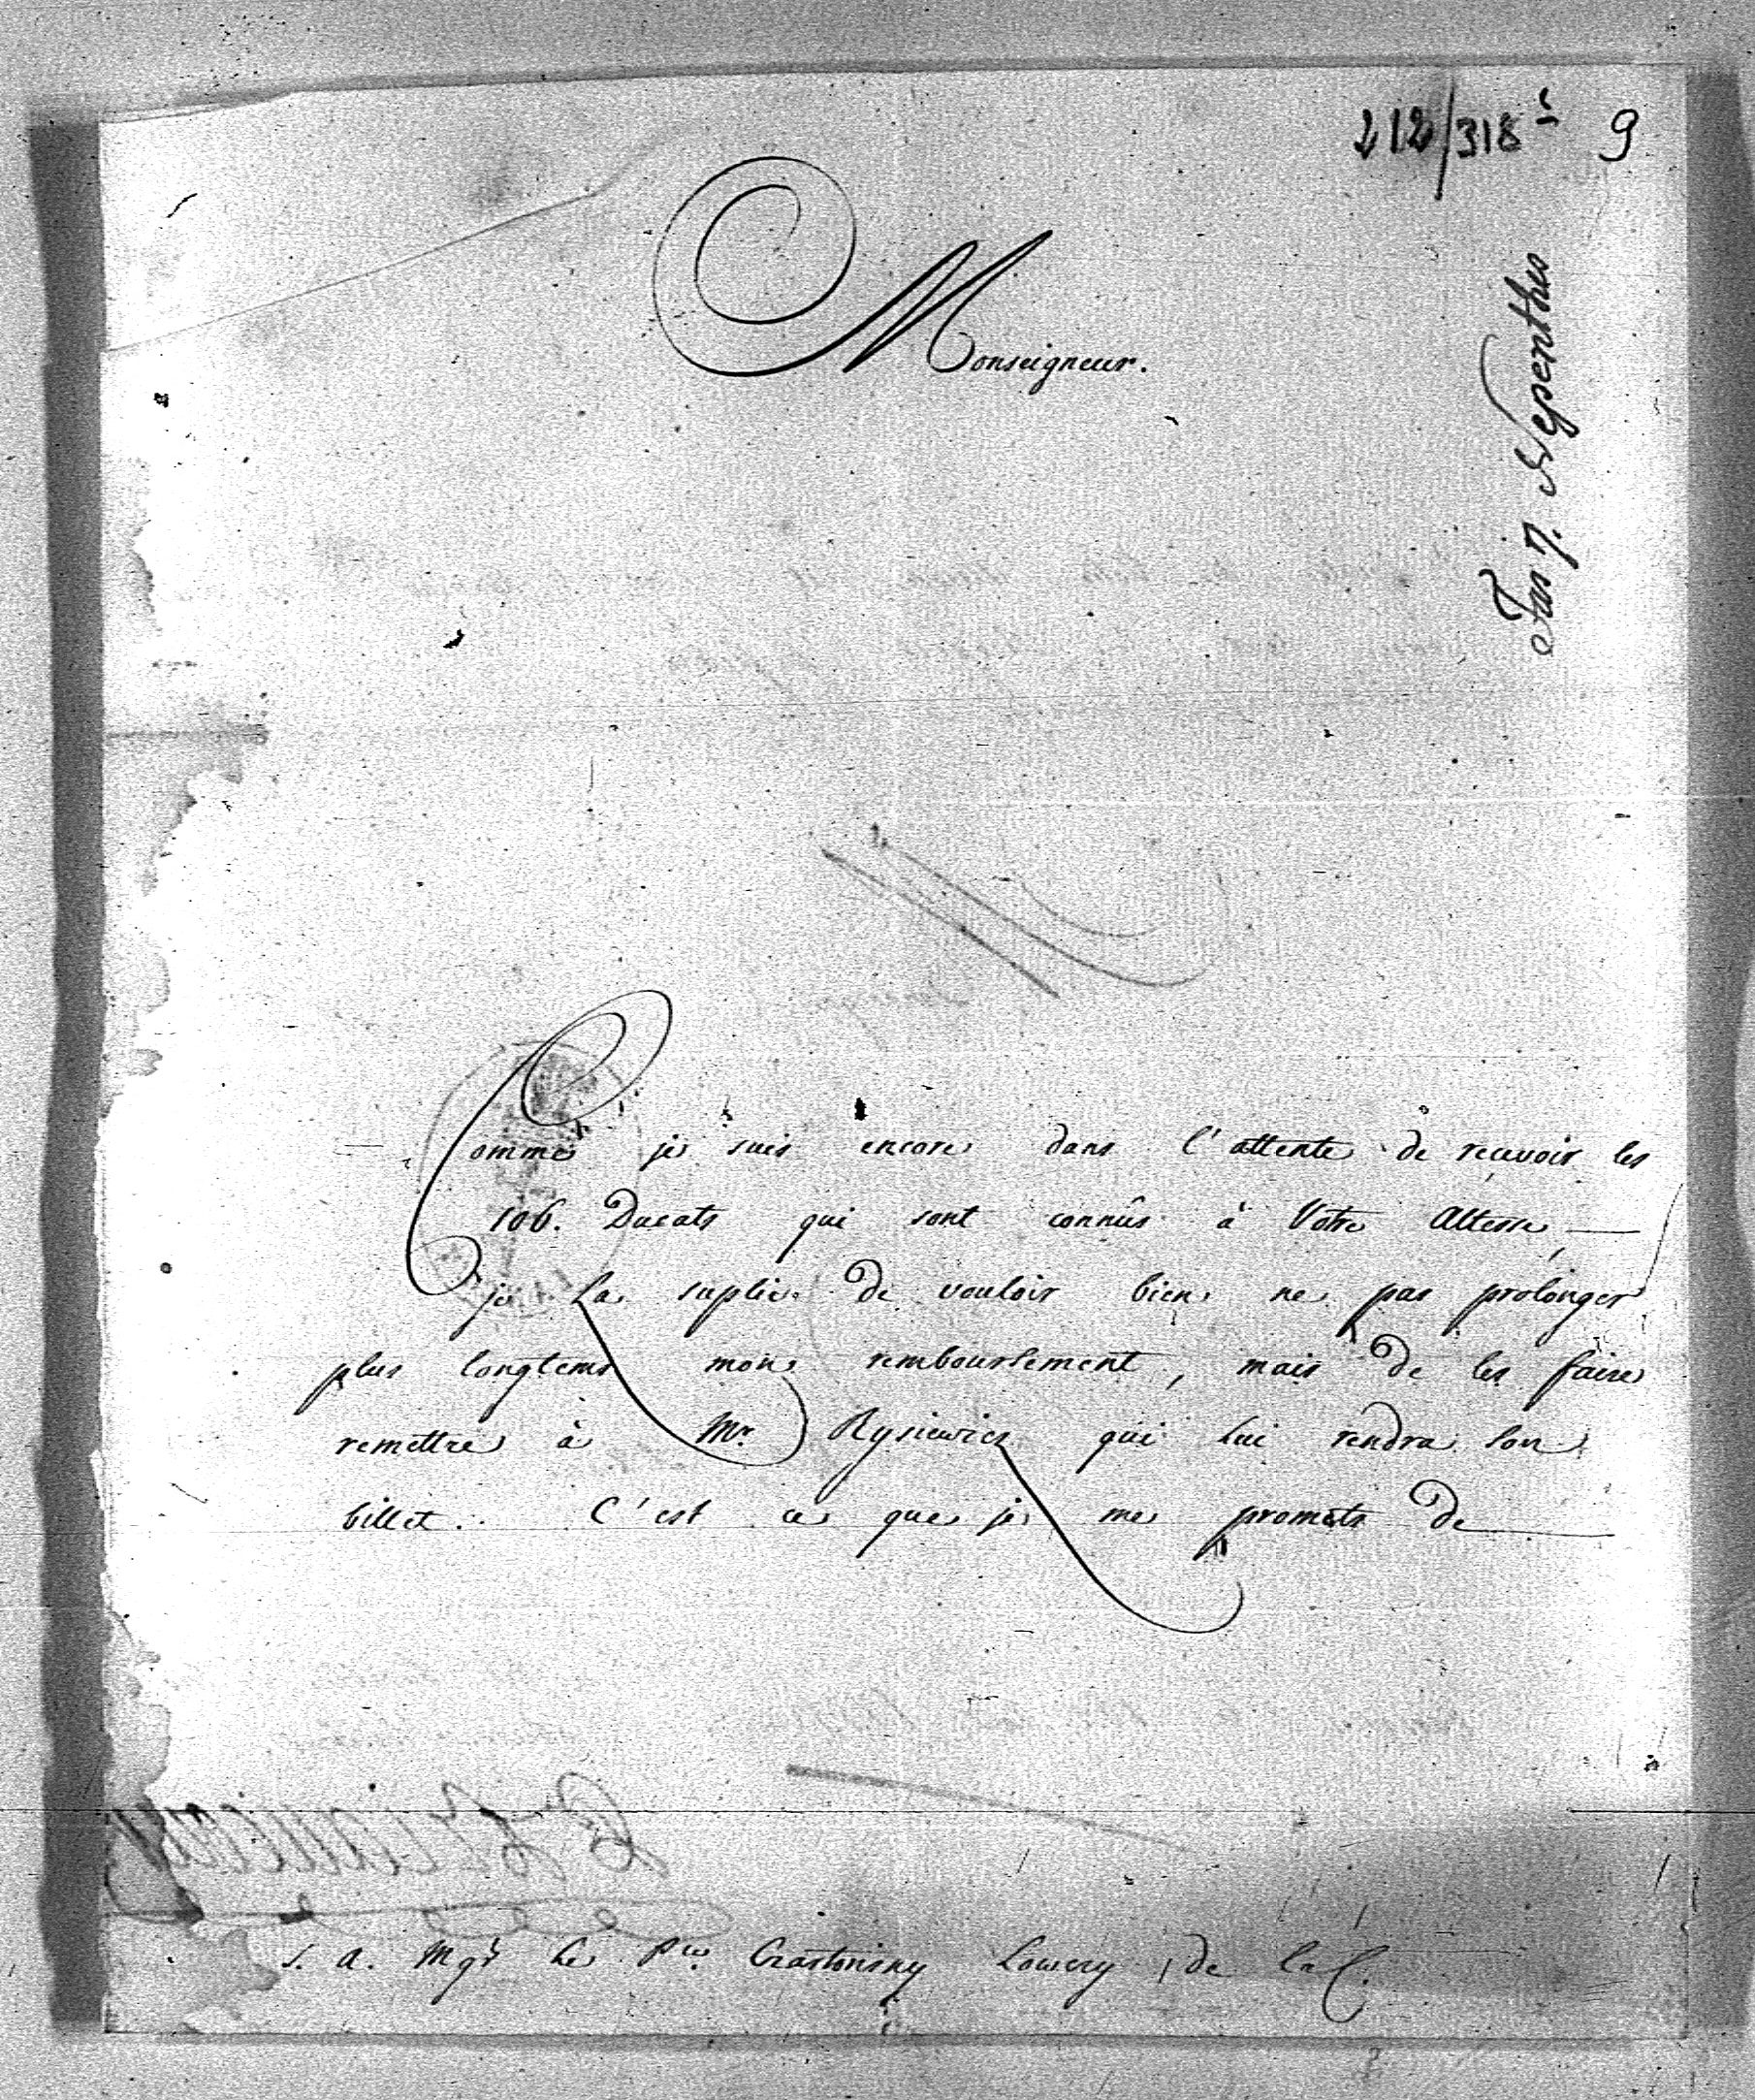 212/318 9
Fas 7. Nepenthes
Monseigneur.
Comme je suis encore dans l'attente de recevoir les
106. Ducats qui sont connûs à Votre Altesse,
je La suplie de vouloir bien ne pas prolonger
plus longtems mon remboursement, mais de les faire
remettre à Mr. Rysiewicz qui Lui rendra Son
billet. C'est ce que je me promets de
S. A. Mgr Le Pce. Czartorisky Lowczy de